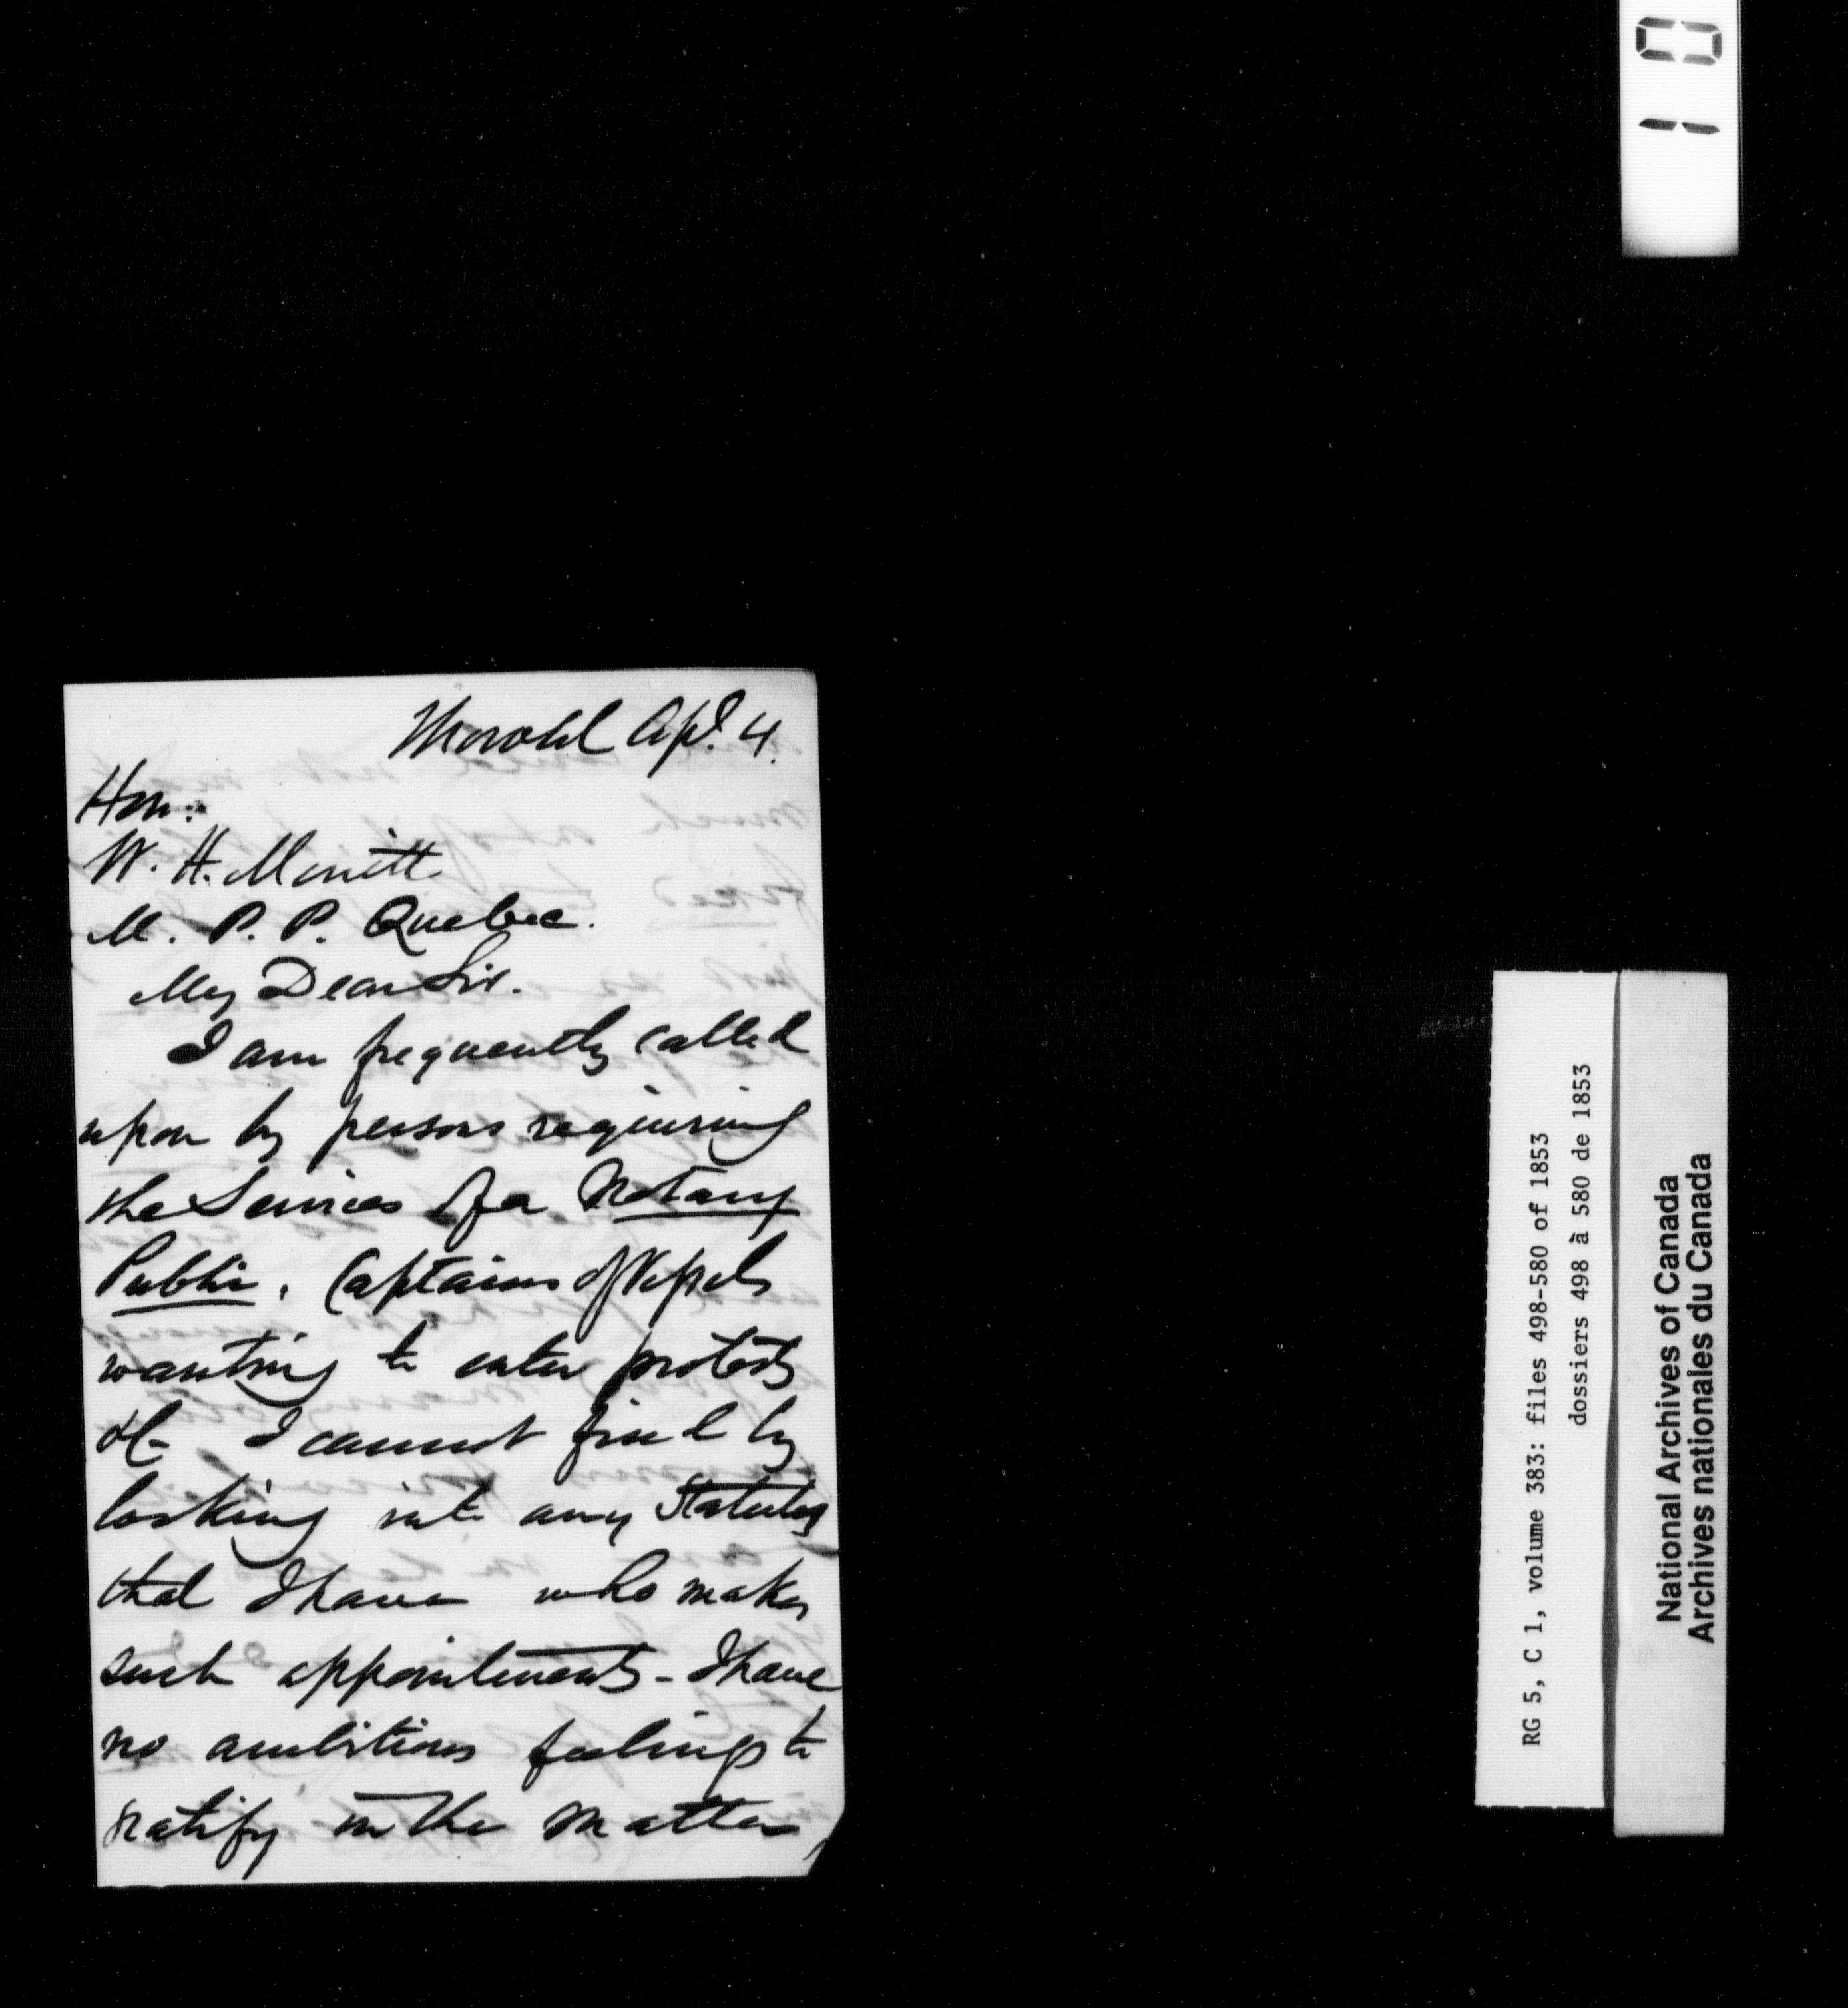 Thorold Apl. 4.
Hon:
W. H. Merritt
M. P. P. Quebec.
My Dear Sir.
I am frequently called
upon by persons requiring
the Services of a Notary
Public. Captains of Vessels
wanting to enter protests
&c I cannot find by
looking into any Statutes
that I have who makes
such appointments - I have
no ambitious feelings to
gratify in the matter,
10
RG 5, C 1, volume 383: files 498-580 of 1853
dossiers 498 à 580 de 1853
National Archives of Canada
Archives nationales du Canada